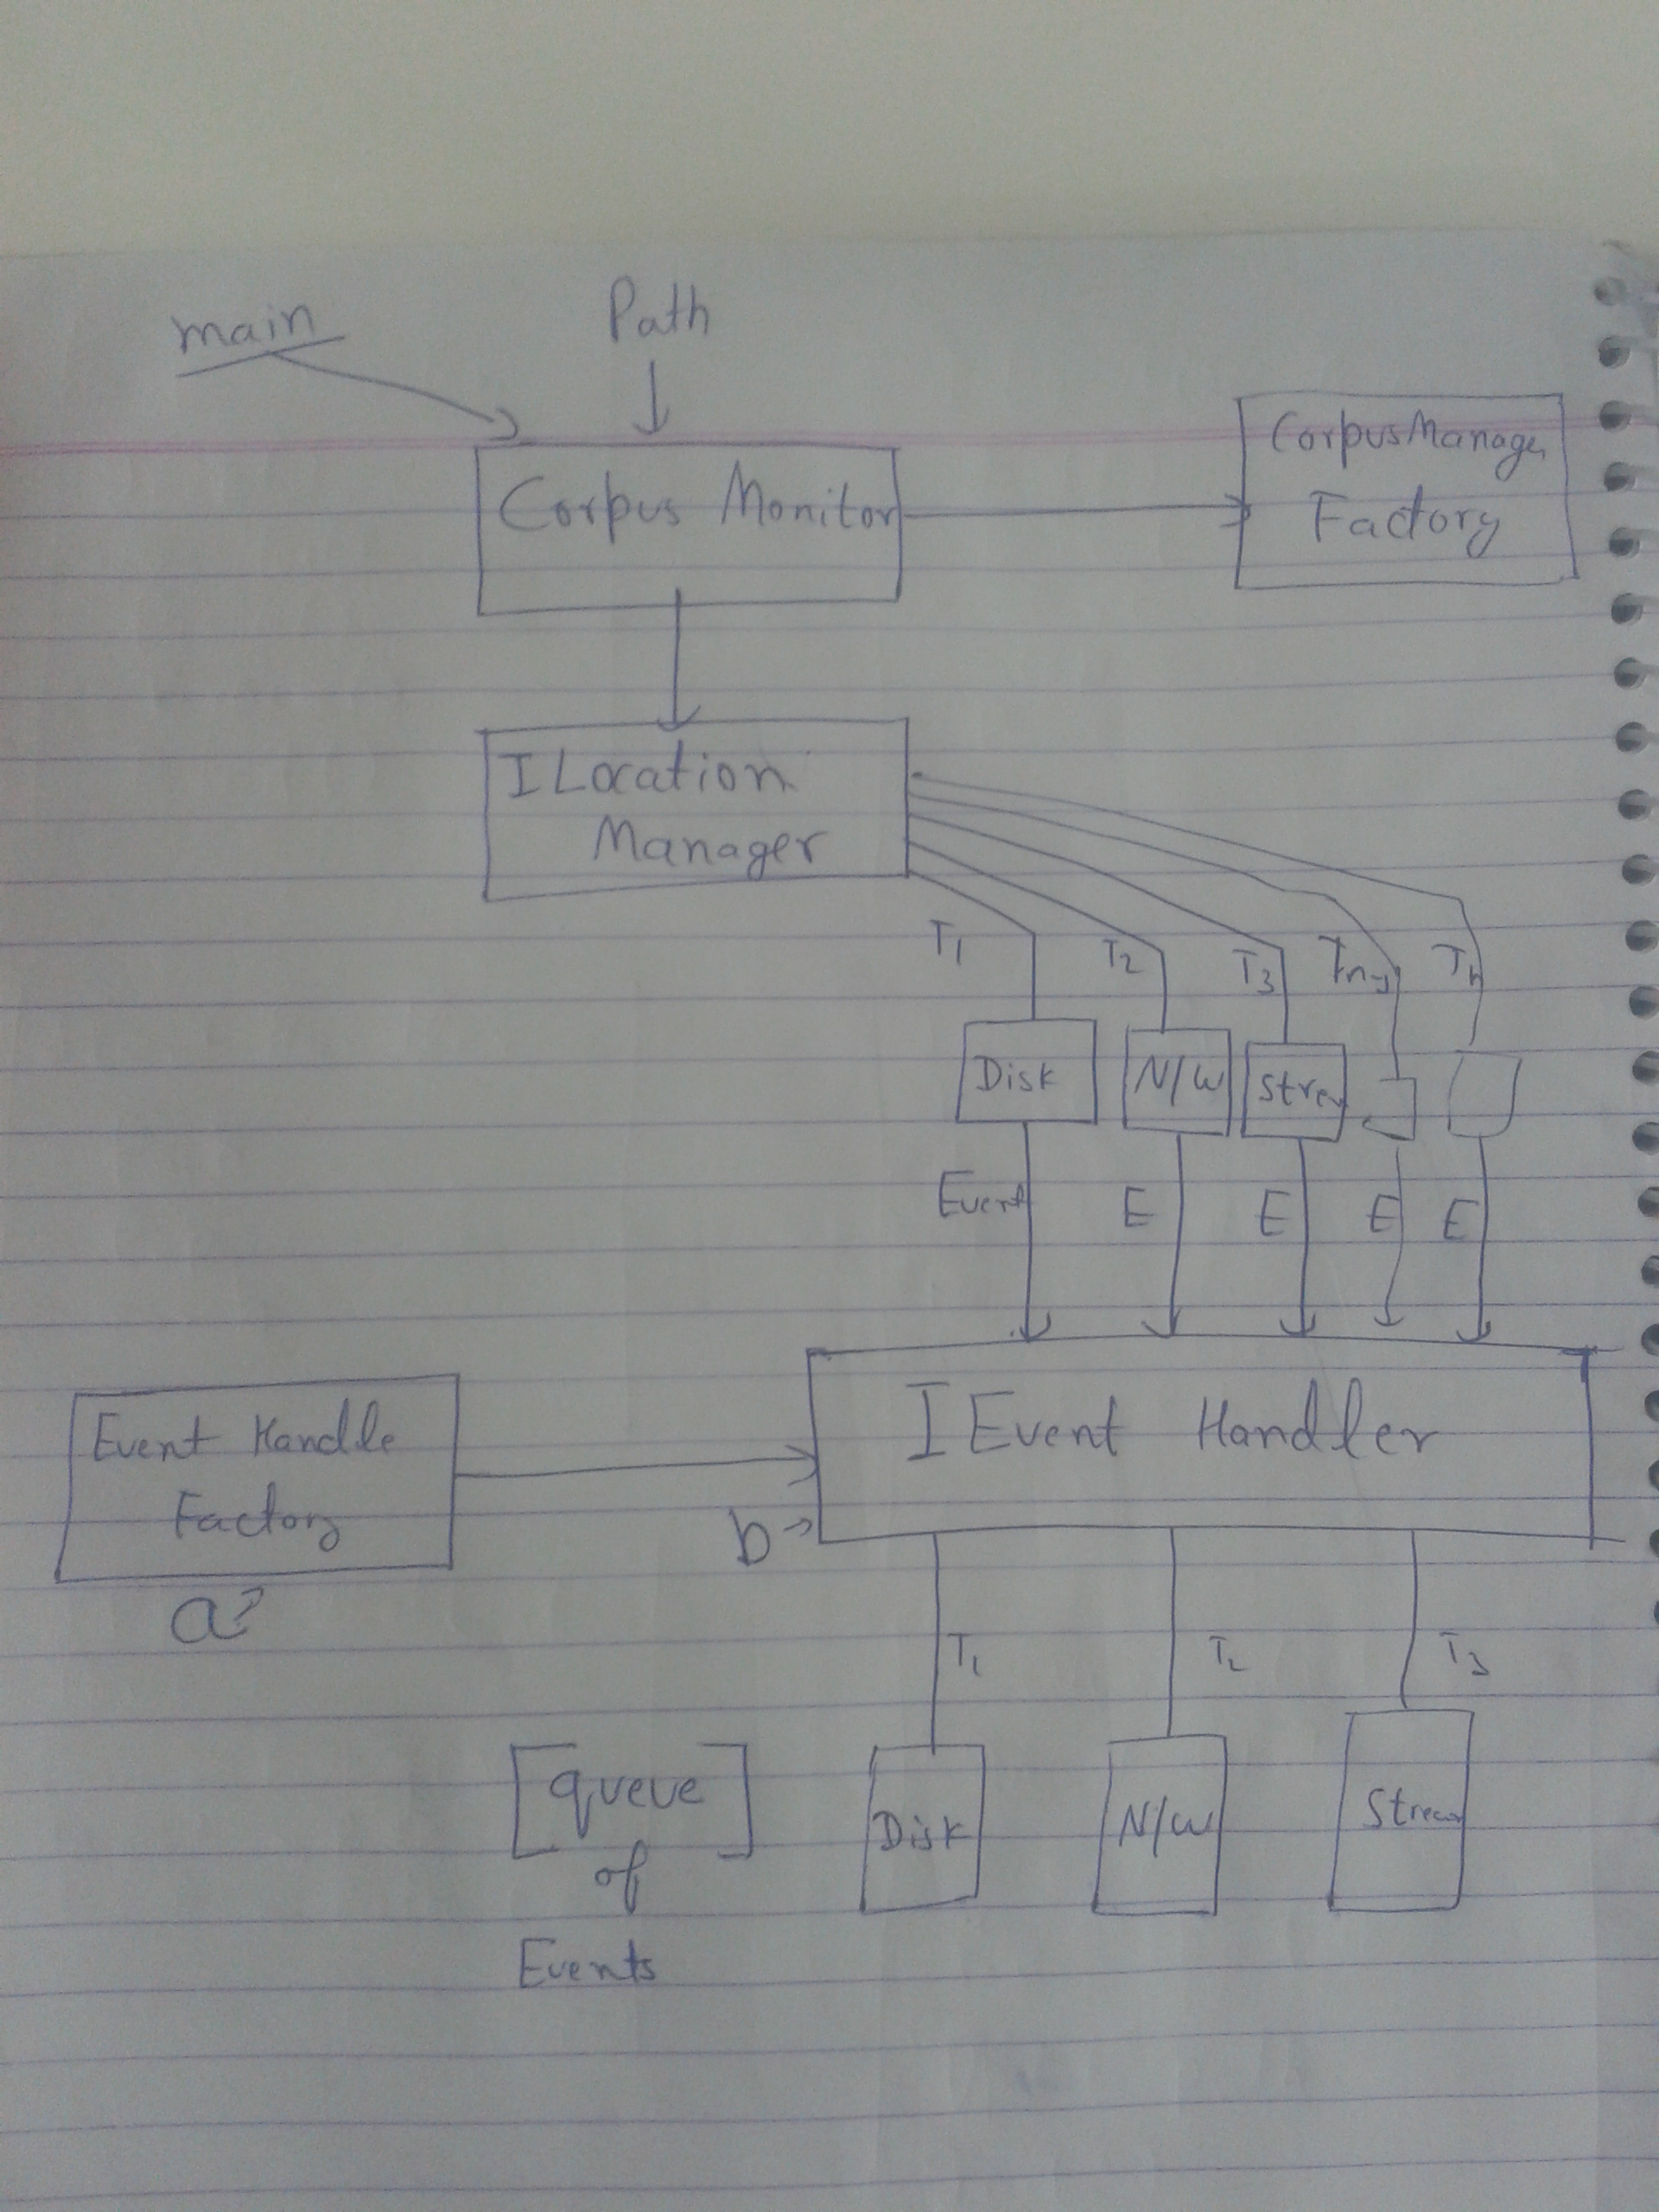 main
Path
Corpus Monitor
CorpusManager
Factory
ILocation
Manager
T1
T2
T3
Tn-1
Tn
Disk
N/W
Event
E
E
E
E
Event Handle
Factory
a?
I Event Handler
b→
T1
T2
T3
[queue]
of
Events
Disk
N/W